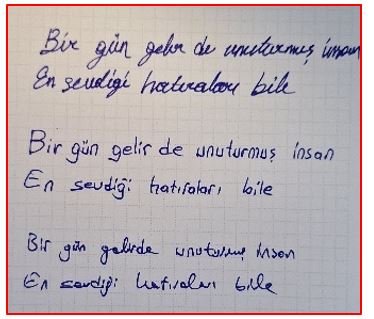 Bir gün gelir de unuturmuş insan
En sevdiği hatıraları bile
Bir gün gelir de unuturmuş insan
En sevdiği hatıraları bile
Bir gün gelirde unuturmuş insan
En sevdiği hatıraları bile